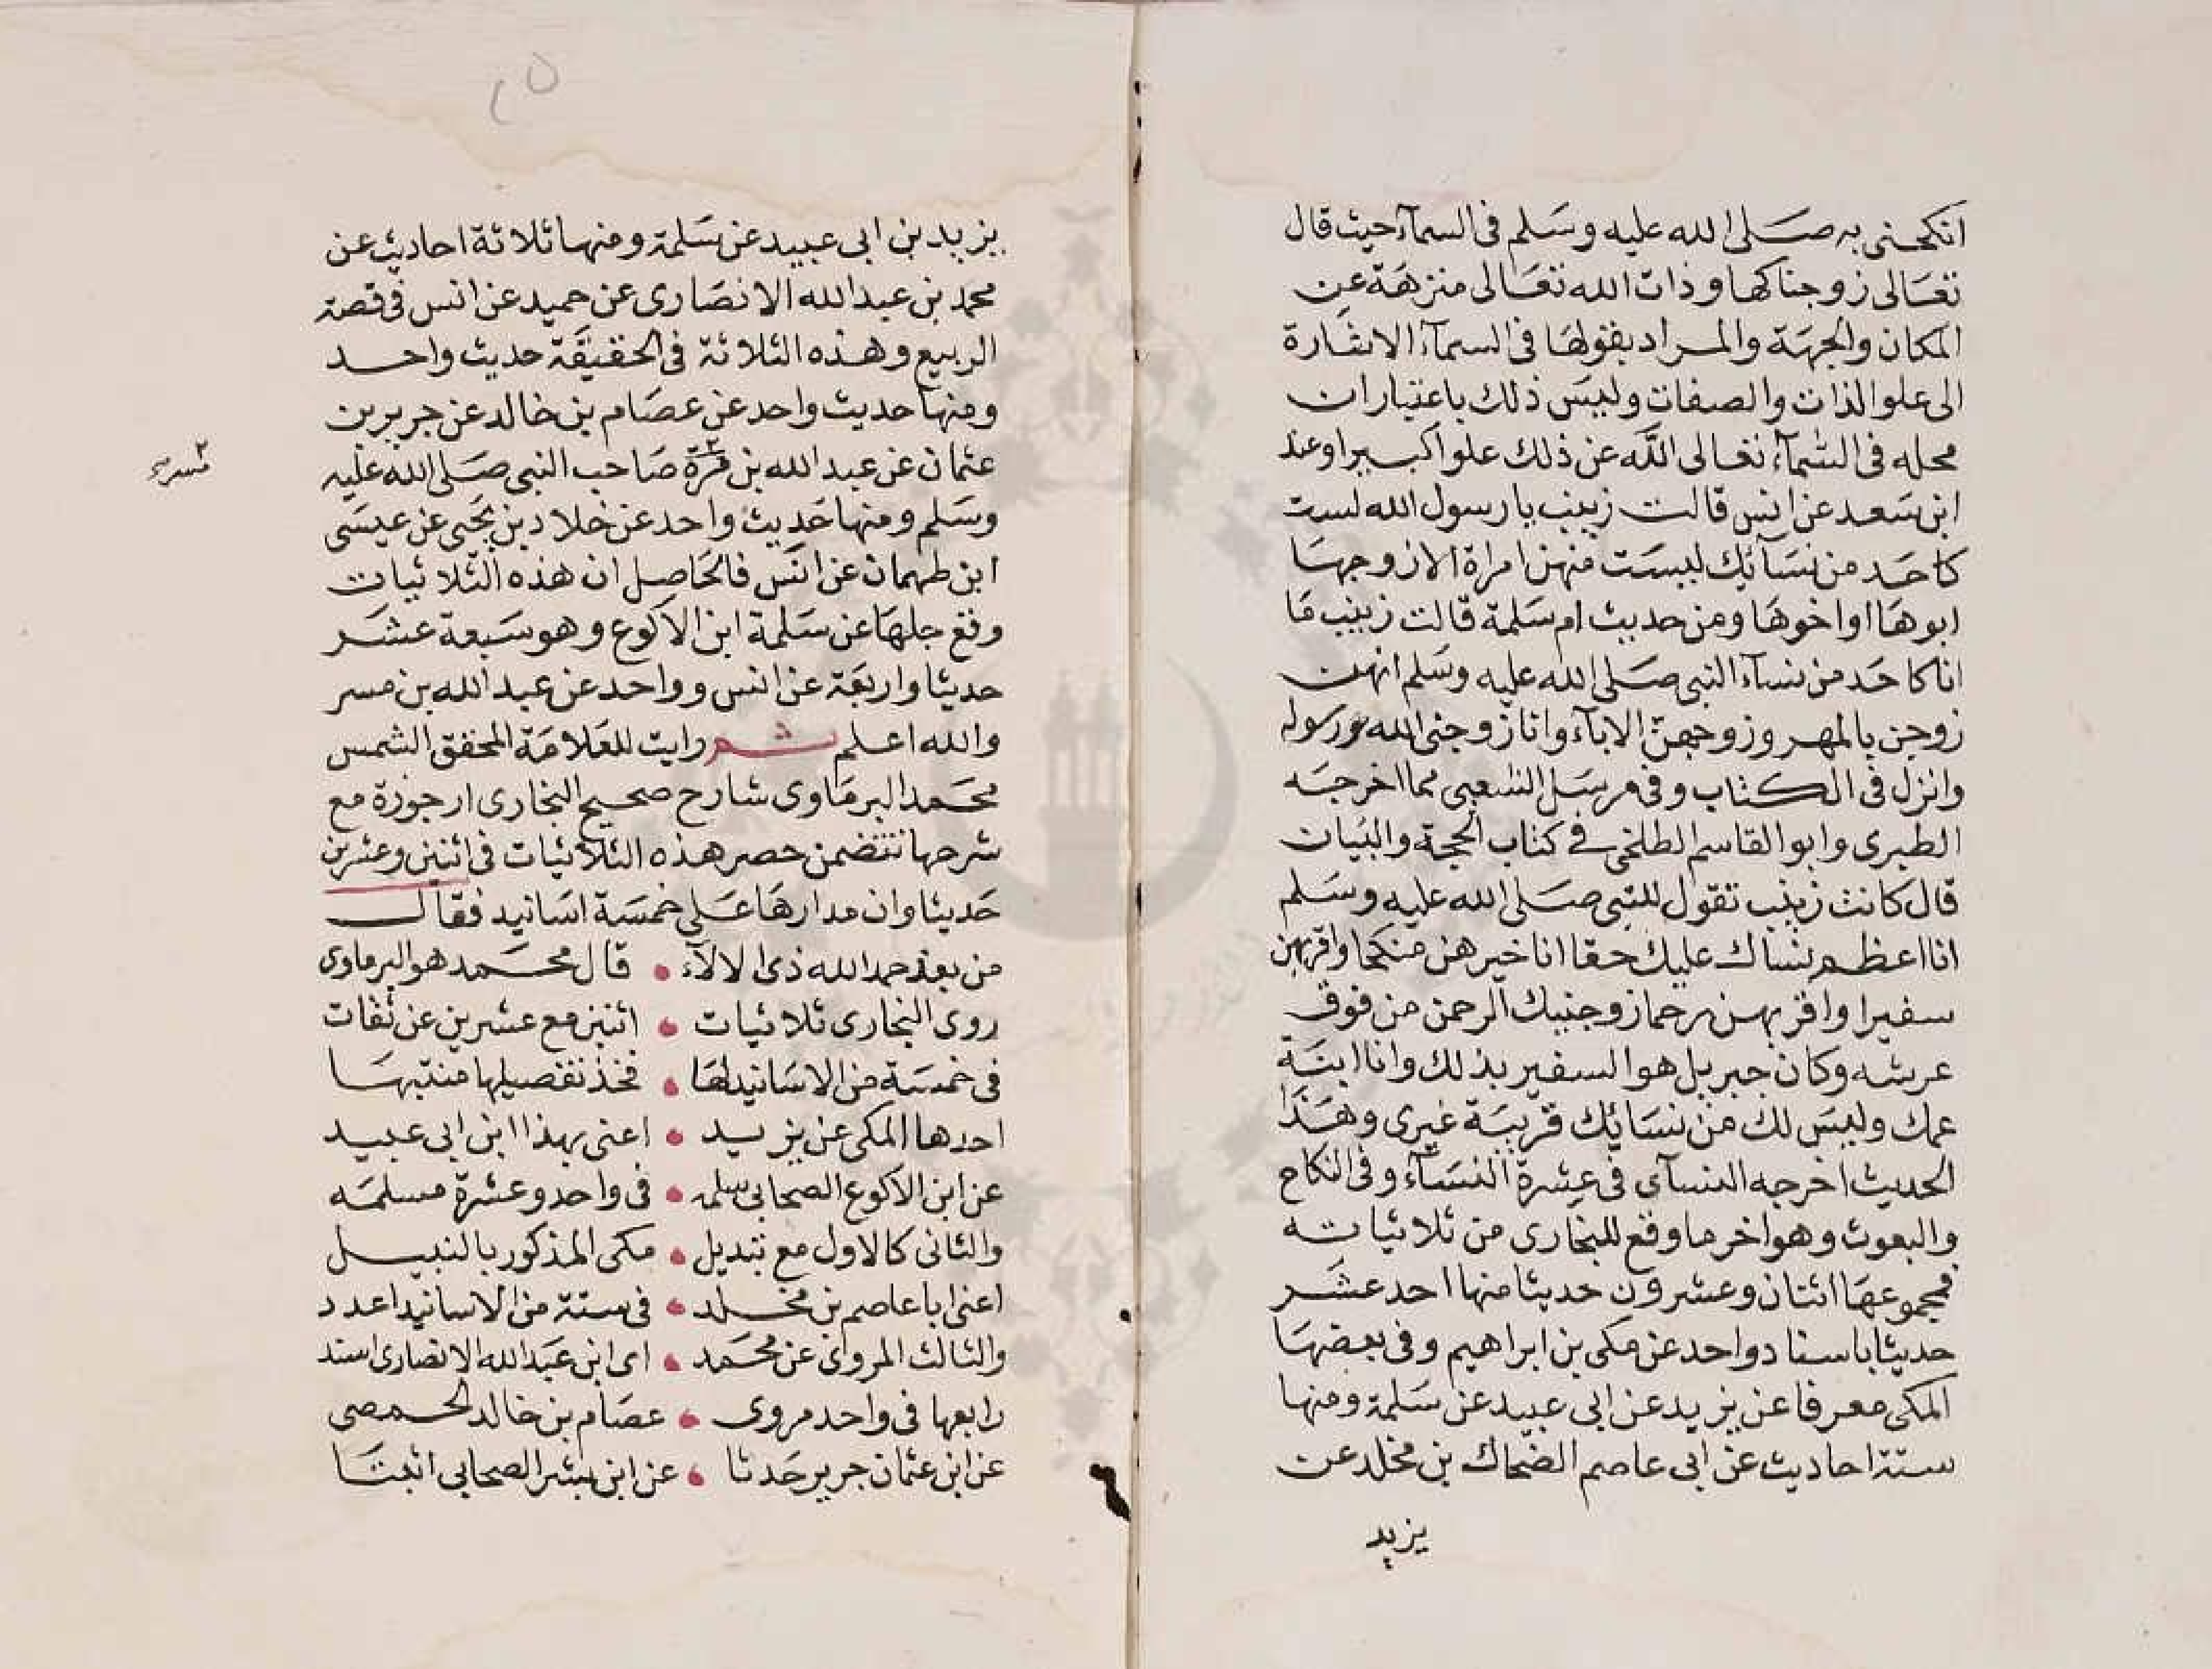 انكحنى به صلى الله عليه وسلم فى السمآء حيث قال
تعالى زوجناكها وذات الله تعالى منزهة عن
المكان والجهة والمراد بقولها فى السمآء الاشارة
الى علو الذات والصفات وليس ذلك باعتبار ان
محله فى السمآء تعالى الله عن ذلك علوا كبيرا وعند
ابن سعد عن انس قالت زينب يا رسول الله لست
كاحد من نسآئك ليست منهن امراة الا زوجها
ابوها او اخوها ومن حديث ام سلمة قالت زينب ما
انا كاحد من نسآء النبى صلى الله عليه وسلم انهن
زوجن بالمهر وزوجهن الابآء وانا زوجنى الله ورسوله
وانزل فى الكتاب وفى مرسل الشعبى مما اخرجه
الطبرى وابو القاسم الطلخى فى كتاب الحجة والبيان
قال كانت زينب تقول للنبى صلى الله عليه وسلم
انا اعظم نساك عليك حقا انا خيرهن منكحا واقربهن
سفيرا واقربهن رحما زوجنيك الرحمن من فوق
عرشه وكان جبريل هو السفير بذلك وانا ابنة
عمك وليس لك من نسائك قريبة غيرى وهذا
الحديث اخرجه النسآى فى عشرة النسآء وفى النكاح
والبعوث وهو اخر ما وقع للبخارى من ثلاثياته
فمجموعها اثنان وعشرون حديثا منها احد عشر
حديثا باسناد واحد عن مكى بن ابراهيم وفى بعضها
المكى معرفا عن يزيد عن ابى عبيد عن سلمة ومنها
ستة احاديث عن ابى عاصم الضحاك بن مخلد عن
يزيد
٢٥
يزيد بن ابى عبيد عن سلمة ومنها ثلاثة احاديث عن
محمد بن عبد الله الانصارى عن حميد عن انس فى قصة
الربيع وهذه الثلاثة فى الحقيقة حديث واحد
ومنها حديث واحد عن عصام بن خالد عن جرير بن
عثمان عن عبد الله بن قرة صاحب النبى صلى الله عليه
وسلم ومنها حديث واحد عن خلاد بن يحيى عن عيسى
ابن طهمان عن انس فالحاصل ان هذه الثلاثيات
وقع جلها عن سلمة ابن الاكوع وهو سبعة عشر
حديثا واربعة عن انس وواحد عن عبد الله بن مسر
والله اعلم ثم رايت للعلامة المحقق الشمس
محمد البرماوى شارح صحيح البخارى ارجوزة مع
شرحها تتضمن حصر هذه الثلاثيات فى اثنين وعشرين
حديثا وان مدارها على خمسة اسانيد فقال
من بعد حمد الله ذى الالآء • قال محمد هو البرماوى
روى البخارى ثلاثيات • اثنين مع عشرين عن ثقات
فى خمسة من الاسانيد لها • فخذ تفصيلها منتبها
احدها المكى عن يزيد • اعنى بهذا ابن ابى عبيد
عن ابن الاكوع الصحابى سلمه • فى واحد وعشرة مسلمه
والثانى كالاول مع تبديل • مكى المذكور بالنبيل
اعنى ابا عاصم بن مخلد • فى ستة من الاسانيد اعدد
والثالث المروى عن محمد • اى ابن عبد الله الانصارى اسند
رابعها فى واحد مروى • عصام بن خالد الحمصى
عن ابن عثمان جرير حدثا • عن ابن بشر الصحابى انبعثا